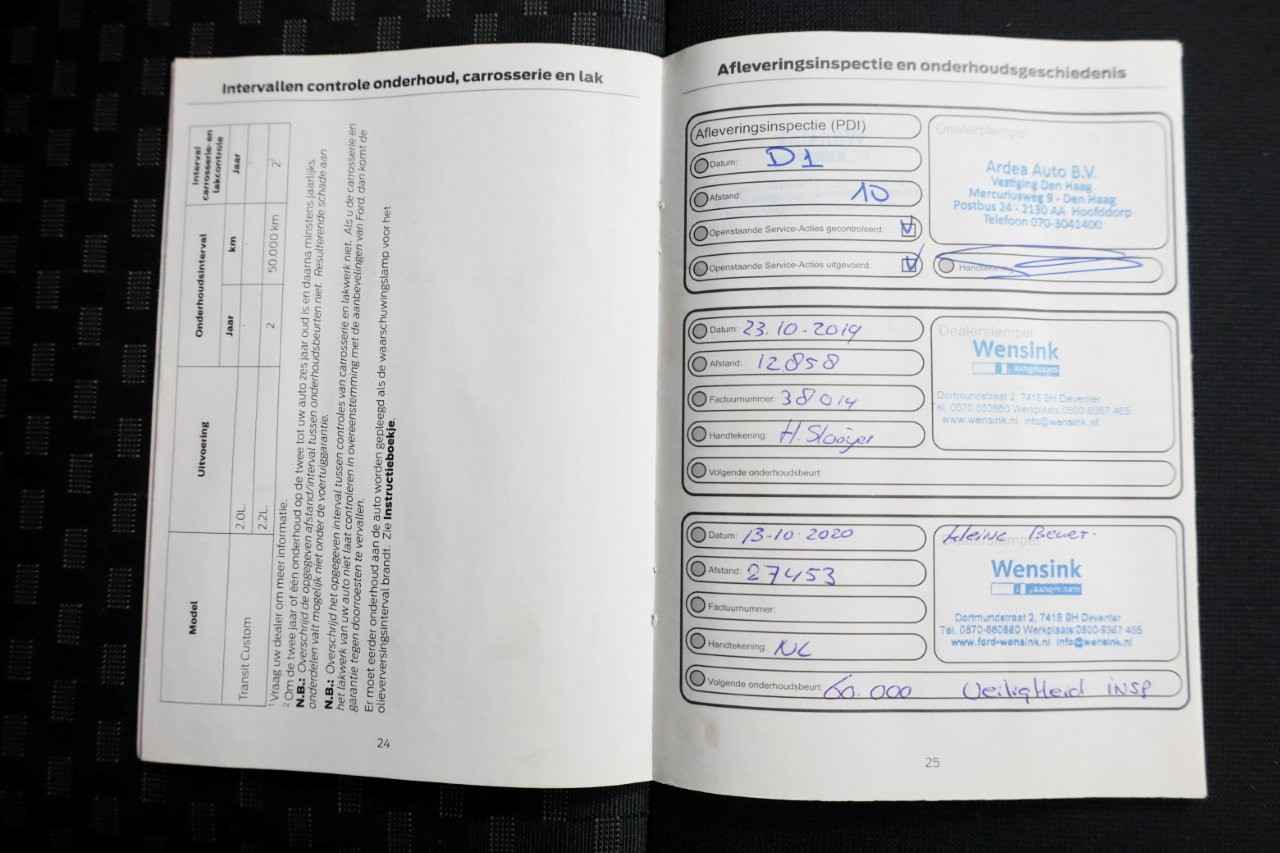 Intervallen controle onderhoud, carrosserie en lak
Model
Uitvoering
Onderhoudsinterval
Interval carrosserie- en lakcontrole
Jaar
km
Jaar
Transit Custom
2.0L
2.2L
2
50.000 km
2
1 Vraag uw dealer om meer informatie.
2 Om de twee jaar of één onderhoud op de twee tot uw auto zes jaar oud is en daarna minstens jaarlijks.
N.B.: Overschrijd de opgegeven afstand/interval tussen onderhoudsbeurten niet. Resulterende schade aan
onderdelen valt mogelijk niet onder de voertuiggarantie.
N.B.: Overschrijd het opgegeven interval tussen controles van carrosserie en lakwerk niet. Als u de carrosserie en
het lakwerk van uw auto niet laat controleren in overeenstemming met de aanbevelingen van Ford, dan komt de
garantie tegen doorroesten te vervallen.
Er moet eerder onderhoud aan de auto worden gepleegd als de waarschuwingslamp voor het
olieverversingsinterval brandt. Zie Instructieboekje.
24
Afleveringsinspectie en onderhoudsgeschiedenis
Afleveringsinspectie (PDI)
Datum: D1
Afstand: 10
Openstaande Service-Acties gecontroleerd:
Openstaande Service-Acties uitgevoerd:
Dealerstempel
Ardea Auto B.V.
Vestiging Den Haag
Mercuriusweg 9 - Den Haag
Postbus 24 - 2130 AA Hoofddorp
Telefoon 070-3041400
Datum: 23.10-2019
Afstand: 12858
Factuurnummer: 38014
Handtekening: H. Slooijer
Volgende onderhoudsbeurt
Dealerstempel
Wensink
Dortmundstraat 2, 7418 BH Deventer
Tel. 0570-660660 Werkplaats 0800-9367 465
www.wensink.nl info@wensink.nl
Datum: 13-10-2020
Afstand: 27453
Factuurnummer:
Handtekening: NL
Volgende onderhoudsbeurt: 60.000 Veiligheid insp
kleine Beurt.
Wensink
Dortmundstraat 2, 7418 BH Deventer
Tel. 0570-660660 Werkplaats 0800-9367 465
www.ford-wensink.nl info@wensink.nl
25